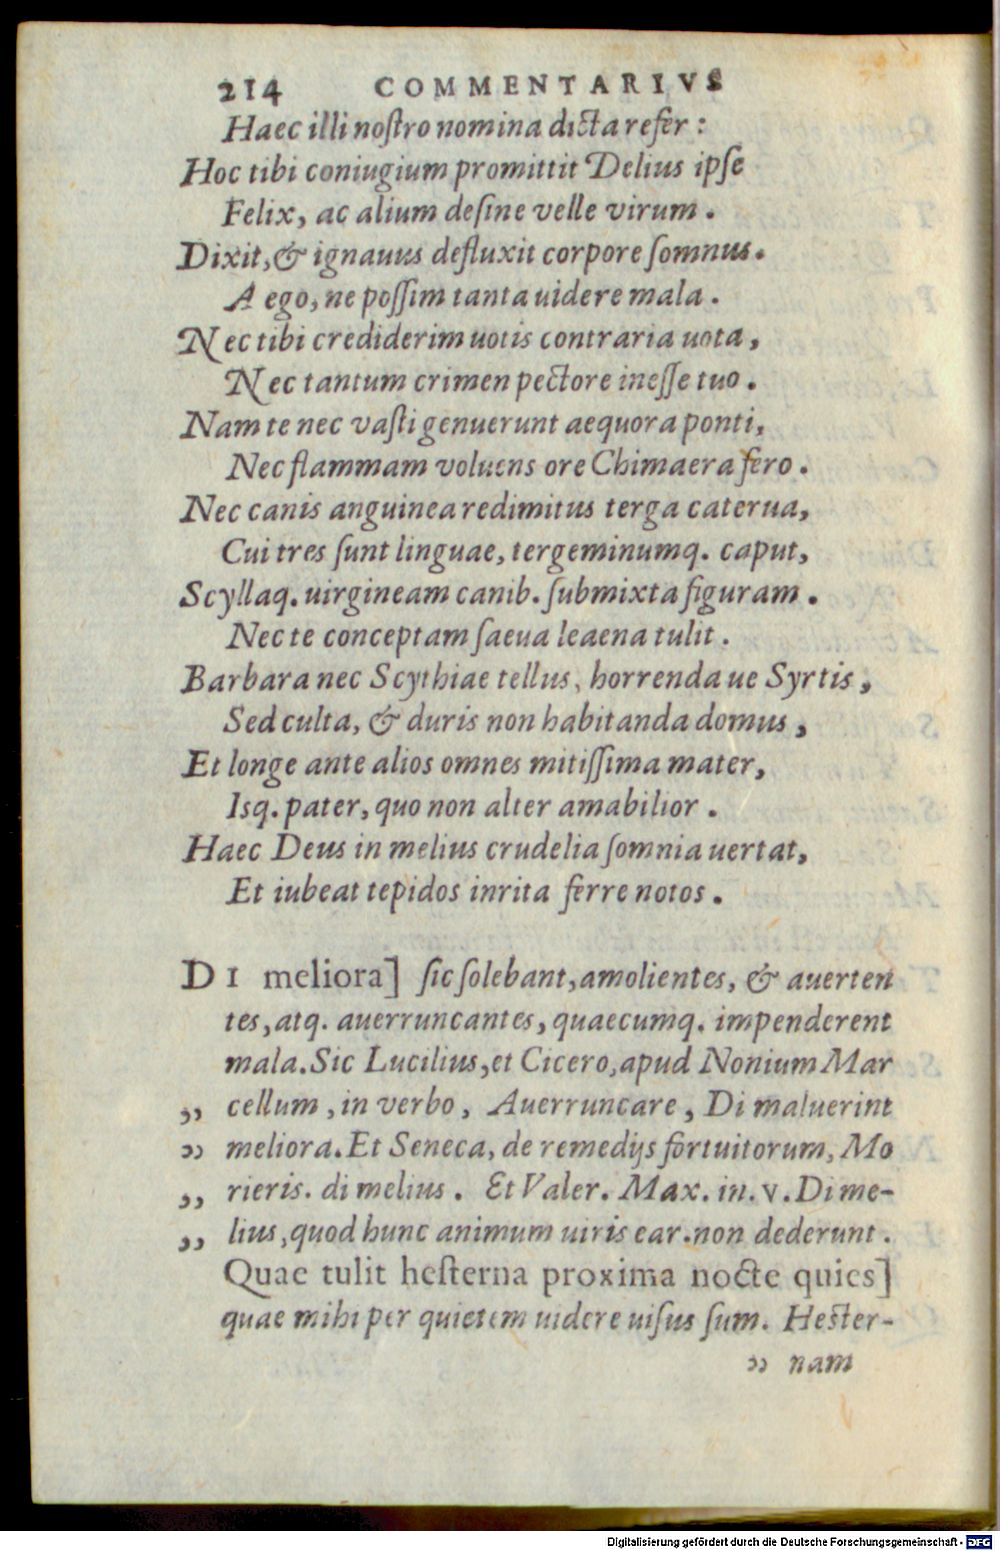 214 COMMENTARIVS
Haec illi nostro nomina dicta refer:
Hoc tibi coniugium promittit Delius ipse
Felix, ac alium desine velle virum.
Dixit, & ignauus defluxit corpore somnus.
A ego, ne possim tanta uidere mala.
Nec tibi crediderim uotis contraria uota,
Nec tantum crimen pectore inesse tuo.
Nam te nec vasti genuerunt aequora ponti,
Nec flammam voluens ore Chimaera fero.
Nec canis anguinea redimitus terga caterua,
Cui tres sunt linguae, tergeminumq. caput,
Scyllaq. uirgineam canib. submixta figuram.
Nec te conceptam saeua leaena tulit.
Barbara nec Scythiae tellus, horrenda ue Syrtis,
Sed culta, & duris non habitanda domus,
Et longe ante alios omnes mitissima mater,
Isq. pater, quo non alter amabilior.
Haec Deus in melius crudelia somnia uertat,
Et iubeat tepidos inrita ferre notos.
DI meliora] sic solebant, amolientes, & auerten
tes, atq. auerruncantes, quaecumq. impenderent
mala. Sic Lucilius, et Cicero, apud Nonium Mar
,, cellum, in verbo, Auerruncare, Di maluerint
,, meliora. Et Seneca, de remedijs fortuitorum, Mo
,, rieris. di melius. Et Valer. Max. in. v. Di me-
,, lius, quod hunc animum uiris ear. non dederunt.
Quae tulit hesterna proxima nocte quies]
quae mihi per quietem uidere uisus sum. Hester-
,, nam
Digitalisierung gefördert durch die Deutsche Forschungsgemeinschaft - DFG